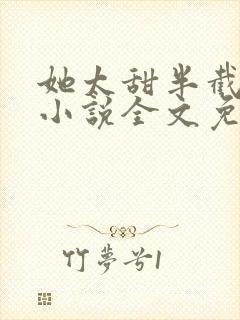 她太甜半截
小說全文免
竹夢兮1